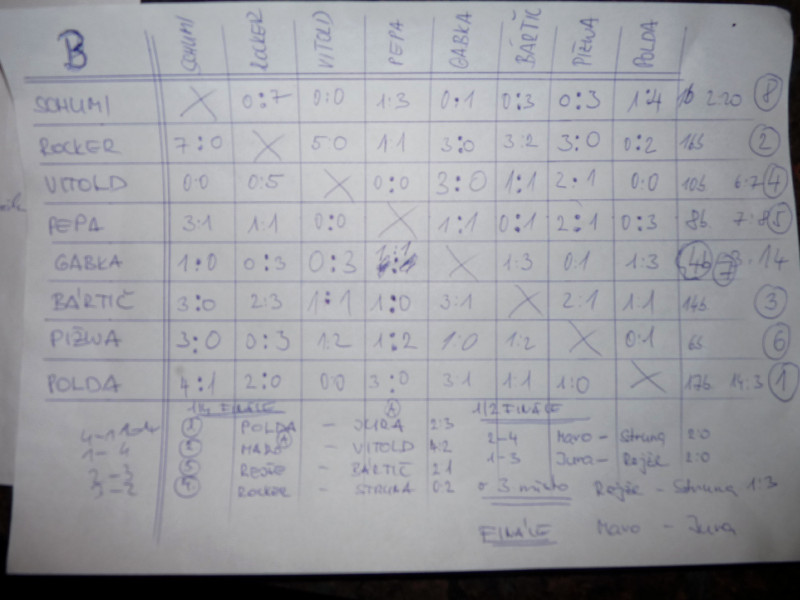 B SCHUMI ROCKER VITOLD PEPA GABKA BÁRTIČ PÍŽWA POLDA
SCHUMI X 0:7 0:0 1:3 0:1 0:3 0:3 1:4 1b 2:20 8
ROCKER 7:0 X 5:0 1:1 3:0 3:2 3:0 0:2 16b 2
VITOLD 0:0 0:5 X 0:0 3:0 1:1 2:1 0:0 10b 6:7 4
PEPA 3:1 1:1 0:0 X 1:1 0:1 2:1 0:3 8b 7:8 5
GABKA 1:0 0:3 0:3 1:1 X 1:3 0:1 1:3 4b 14 7
BÁRTIČ 3:0 2:3 1:1 1:0 3:1 X 2:1 1:1 14b 3
PIŽWA 3:0 0:3 1:2 1:2 1:0 1:2 X 0:1 6b 6
POLDA 4:1 2:0 0:0 3:0 3:1 1:1 1:0 X 17b 14:3 1
1/4 FINÁLE A 1/2 FINÁLE
POLDA - JURA 2:3
1-4 MARO A - VITOLD 4:2 2-4 Maro - Struna 2:0
BÁRTIČ 2:1 1-3 Jura - Rejže 2:0
ROCKER - STRUNA 0:2 o 3. místo Rejže - Struna 1:3
FINÁLE Maro - Jura